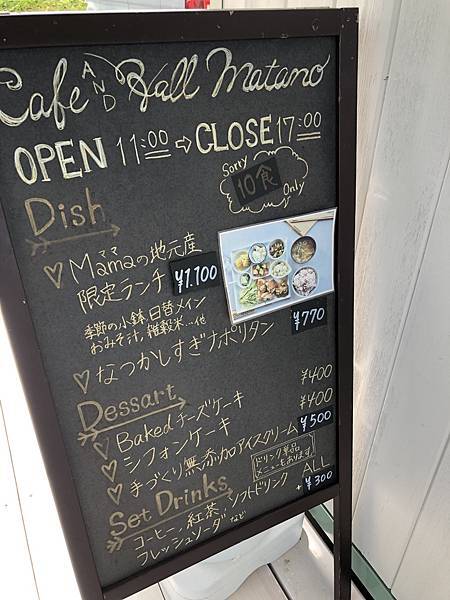 Cafe AND Hall Matano
OPEN 11:00 ⇨ CLOSE 17:00
Sorry
10食
Only
Dish
♡ Mamaの地元産
ママ
限定ランチ ¥1.100
季節の小鉢、日替メイン
おみそ汁、雑穀米…他
♡ なつかしすぎナポリタン ¥770
Dessart
♡ Baked チーズケーキ ¥400
♡ シフォンケーキ ¥400
♡ 手づくり無添加アイスクリーム ¥500
ドリンク単品
メニューもあります。
Set Drinks ALL
コーヒー、紅茶、ソフトドリンク +¥300
フレッシュソーダ など